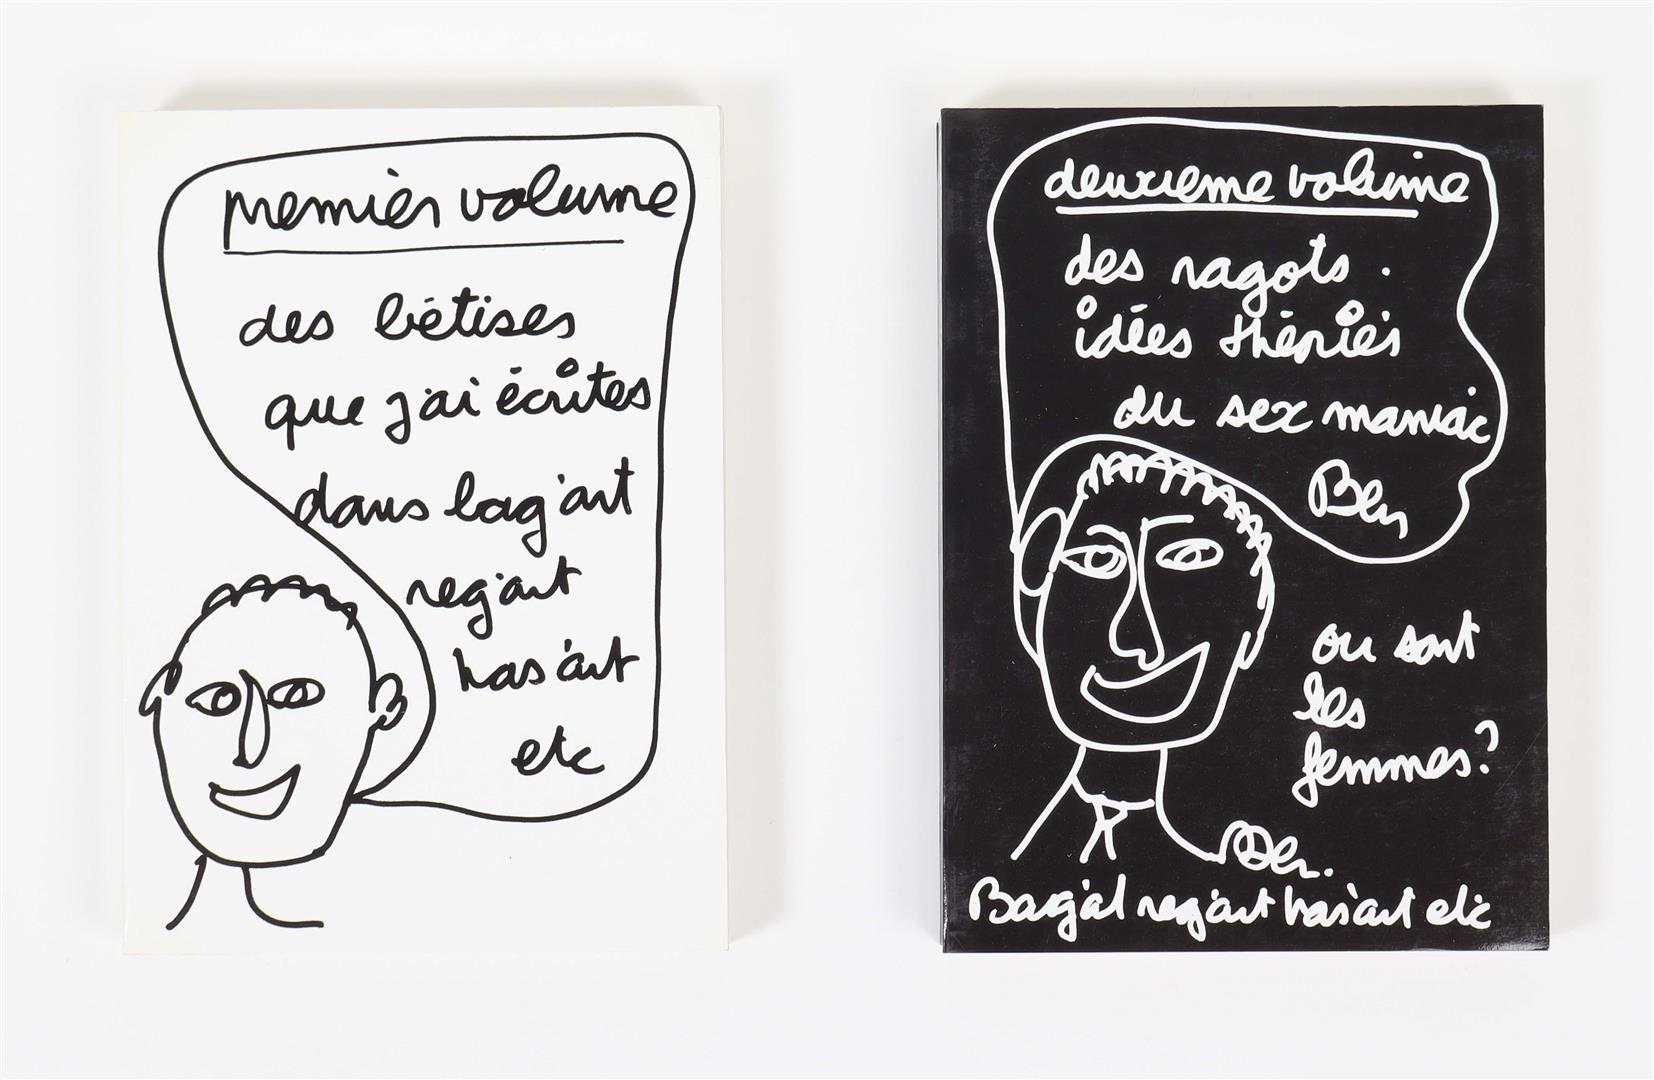 premier volume
des bétises
que j'ai écrites
dans bag'art
reg'art
has'art
etc
deuxieme volume
des ragots.
idées théories
du sex maniac
Ben
ou sont
les
femmes?
Ben.
Bag'at reg'art has'art etc